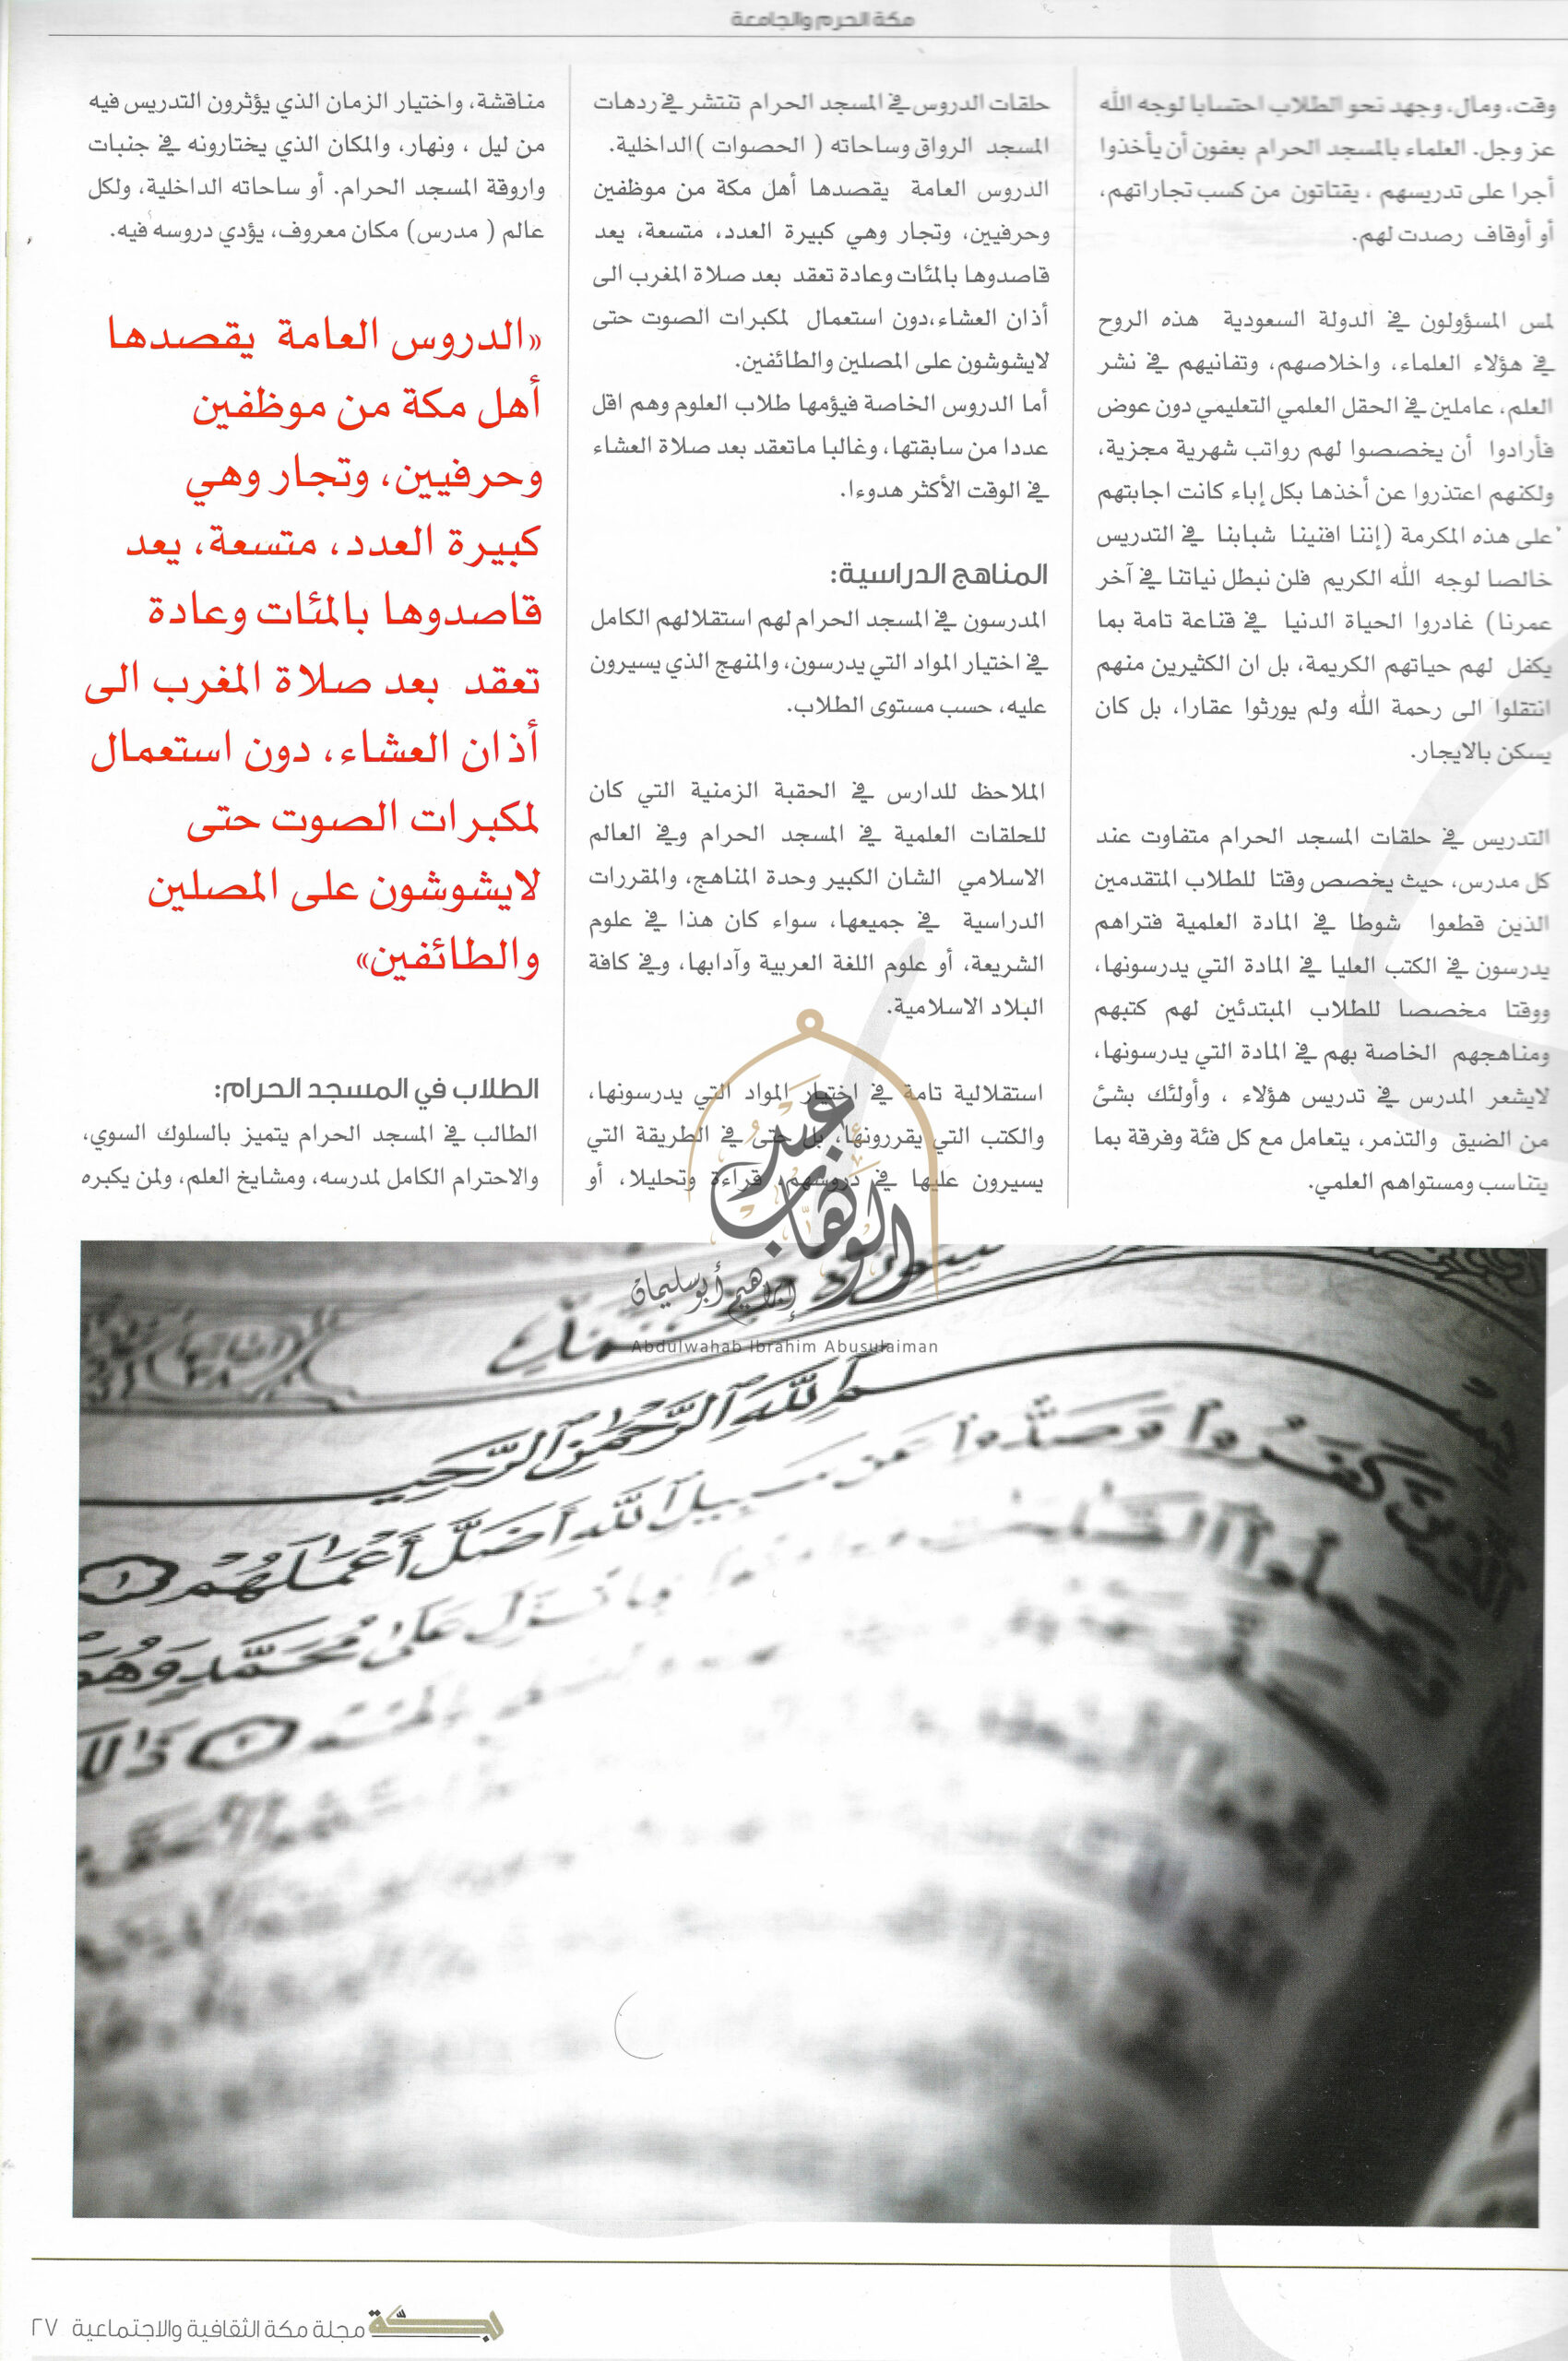 مكة الحرم والجامعة
وقت، ومال، وجهد نحو الطلاب احتسابا لوجه الله
عز وجل. العلماء بالمسجد الحرام يعفون أن يأخذوا
أجرا على تدريسهم ، يقتاتون من كسب تجاراتهم،
أو أوقاف رصدت لهم.
لمس المسؤولون في الدولة السعودية هذه الروح
في هؤلاء العلماء، واخلاصهم، وتفانيهم في نشر
العلم، عاملين في الحقل العلمي التعليمي دون عوض
فأرادوا أن يخصصوا لهم رواتب شهرية مجزية،
ولكنهم اعتذروا عن أخذها بكل إباء كانت اجابتهم
على هذه المكرمة (إننا افنينا شبابنا في التدريس
خالصا لوجه الله الكريم فلن نبطل نياتنا في آخر
عمرنا) غادروا الحياة الدنيا في قناعة تامة بما
يكفل لهم حياتهم الكريمة، بل ان الكثيرين منهم
انتقلوا الى رحمة الله ولم يورثوا عقارا، بل كان
يسكن بالايجار.
التدريس في حلقات المسجد الحرام متفاوت عند
كل مدرس، حيث يخصص وقتا للطلاب المتقدمين
الذين قطعوا شوطا في المادة العلمية فتراهم
يدرسون في الكتب العليا في المادة التي يدرسونها،
ووقتا مخصصا للطلاب المبتدئين لهم كتبهم
ومناهجهم الخاصة بهم في المادة التي يدرسونها،
لايشعر المدرس في تدريس هؤلاء ، وأولئك بشئ
من الضيق والتذمر، يتعامل مع كل فئة وفرقة بما
يتناسب ومستواهم العلمي.
حلقات الدروس في المسجد الحرام تنتشر في ردهات
المسجد الرواق وساحاته ( الحصوات )الداخلية.
الدروس العامة يقصدها أهل مكة من موظفين
وحرفيين، وتجار وهي كبيرة العدد، متسعة، يعد
قاصدوها بالمئات وعادة تعقد بعد صلاة المغرب الى
أذان العشاء،دون استعمال لمكبرات الصوت حتى
لايشوشون على المصلين والطائفين.
أما الدروس الخاصة فيؤمها طلاب العلوم وهم اقل
عددا من سابقتها، وغالبا ماتعقد بعد صلاة العشاء
في الوقت الأكثر هدوءا.
المناهج الدراسية:
المدرسون في المسجد الحرام لهم استقلالهم الكامل
في اختيار المواد التي يدرسون، والمنهج الذي يسيرون
عليه، حسب مستوى الطلاب.
الملاحظ للدارس في الحقبة الزمنية التي كان
للحلقات العلمية في المسجد الحرام وفي العالم
الاسلامي الشان الكبير وحدة المناهج، والمقررات
الدراسية في جميعها، سواء كان هذا في علوم
الشريعة، أو علوم اللغة العربية وآدابها، وفي كافة
البلاد الاسلامية.
استقلالية تامة في اختيار المواد التي يدرسونها،
والكتب التي يقررونها، بل حتى في الطريقة التي
يسيرون عليها في دروسهم، قراءة وتحليلا، أو
مناقشة، واختيار الزمان الذي يؤثرون التدريس فيه
من ليل ، ونهار، والمكان الذي يختارونه في جنبات
واروقة المسجد الحرام. أو ساحاته الداخلية، ولكل
عالم ( مدرس) مكان معروف، يؤدي دروسه فيه.
«الدروس العامة يقصدها
أهل مكة من موظفين
وحرفيين، وتجار وهي
كبيرة العدد، متسعة، يعد
قاصدوها بالمئات وعادة
تعقد بعد صلاة المغرب الى
أذان العشاء، دون استعمال
لمكبرات الصوت حتى
لايشوشون على المصلين
والطائفين»
الطلاب في المسجد الحرام:
الطالب في المسجد الحرام يتميز بالسلوك السوي،
والاحترام الكامل لمدرسه، ومشايخ العلم، ولمن يكبره
عبد
الوهاب
إبراهيم أبو سليمان
Abdulwahab Ibrahim Abusulaiman
ٱللَّهِ ٱلرَّحْمَٰنِ ٱلرَّحِيمِ
كَفَرُوا۟ وَصَدُّوا۟ عَن سَبِيلِ ٱللَّهِ أَضَلَّ أَعْمَٰلَهُمْ ١
نُزِّلَ عَلَىٰ مُحَمَّدٍ وَهُوَ
٢ ذَٰلِكَ
بكة مجلة مكة الثقافية والاجتماعية ٢٧